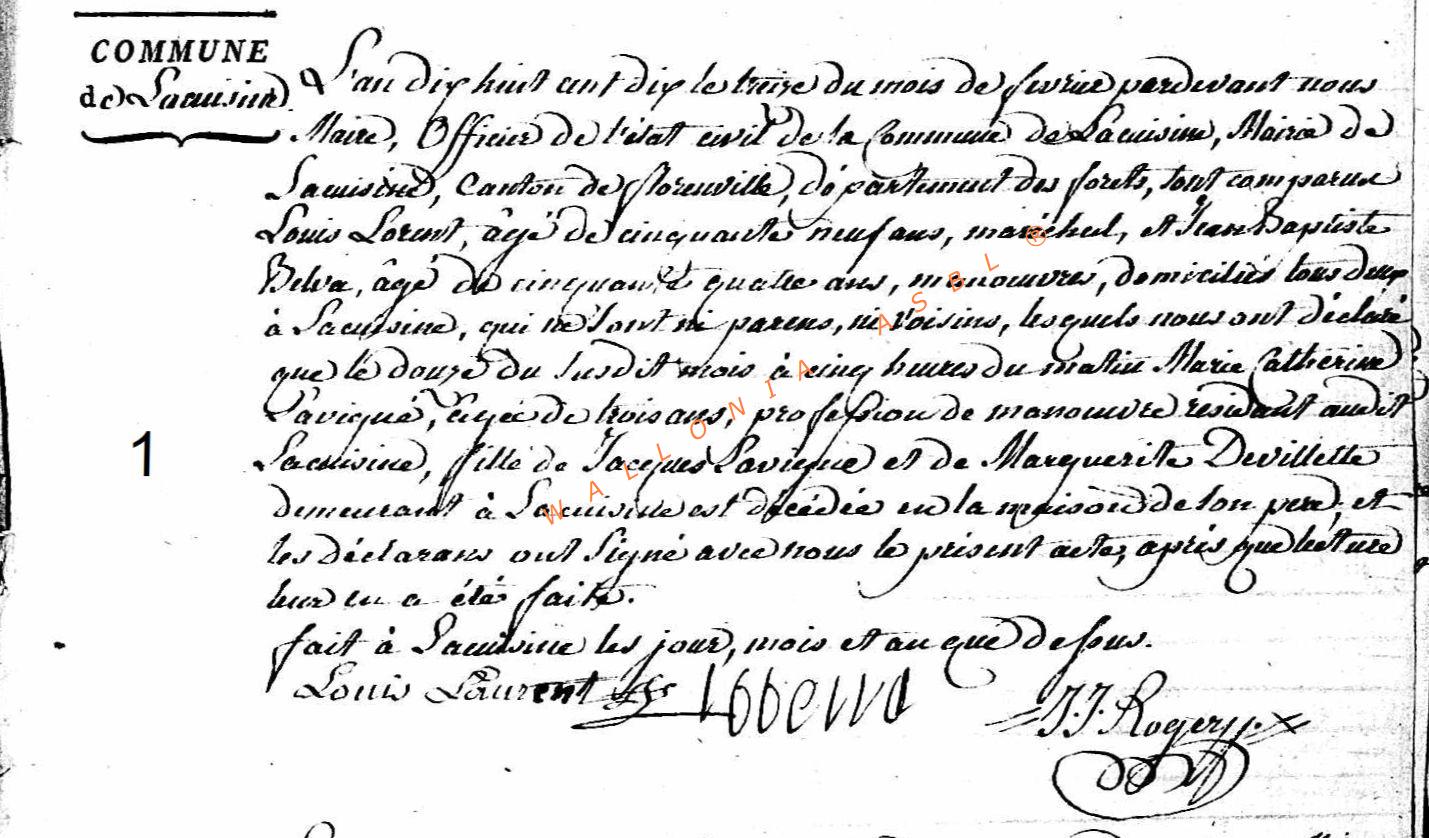 COMMUNE
de Lacuisine
L'an dix huit cent dix le treize du mois de fevrier pardevant nous
Maire, Officier de l'état civil de la Commune de Lacuisine, Mairie de
Lacuisine, Canton de florenville, département des forets, sont comparus
Louis Lorent, âgé de cinquante neuf ans, maréchal, et Jean Baptiste
Belva, âgé de cinquante quatre ans, manoeuvre, domiciliés tous deux
à Lacuisine, qui ne sont ni parens, ni voisins, lesquels nous ont déclaré
que le douze du susdit mois à cinq heures du matin Marie Catherine
Lavigne, âgée de trois ans, profession de manouvre résidant audit
Lacuisine, fille de Jacques Lavigne et de Marguerite Devillette
demeurant à Lacuisine est décédée en la maison de son pere, et
les déclarans ont signé avec nous le présent acte, après que lecture
leur en a été faite.
1
fait à Lacuisine les jour, mois et an que dessus.
Louis Laurent J.J. Rogery
WALLONIA ASBL ®